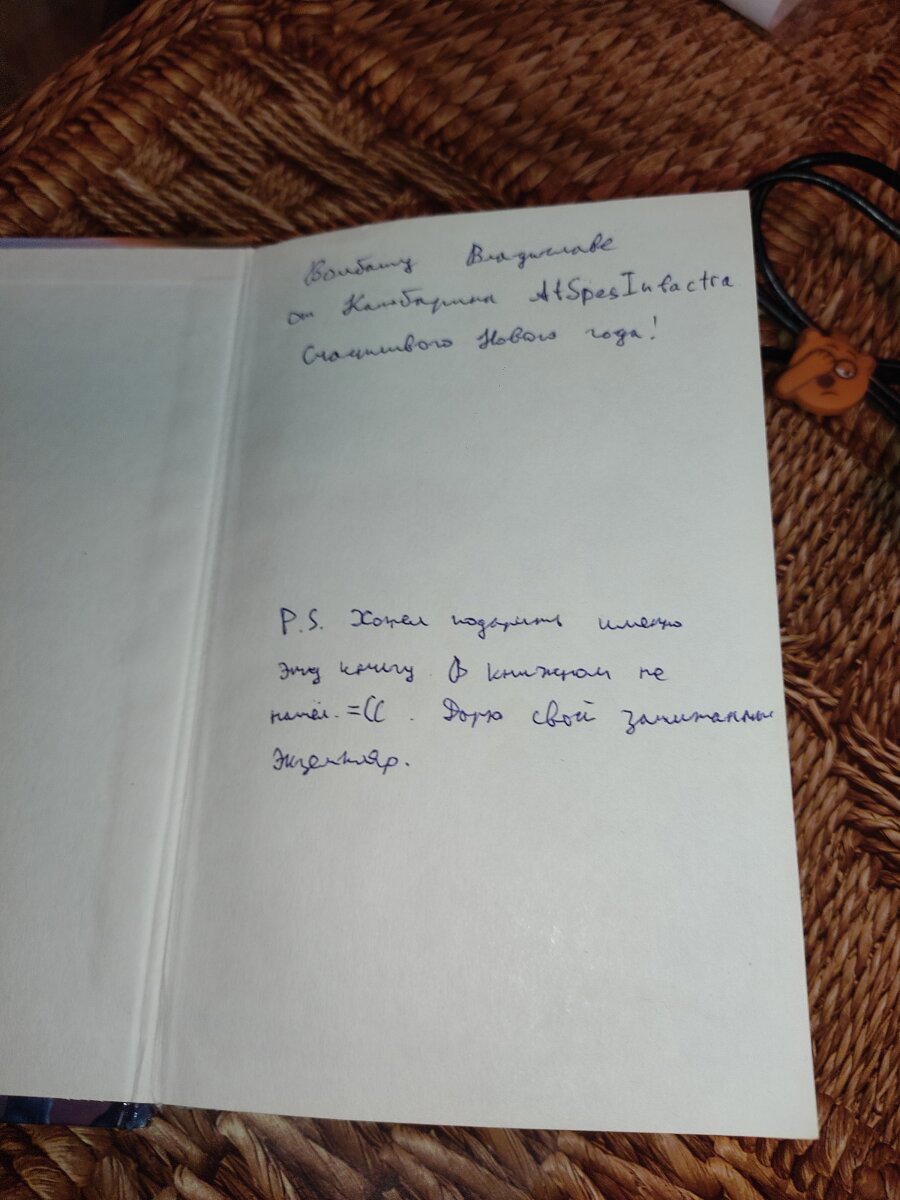 Вомбату Владиславе
от Капибарина AtSpesInfactra
Счастливого Нового года!
P.S. Хотел подарить именно
эту книгу. В книжном не
нашёл. =(( . Дарю свой зачитанный
экземпляр.